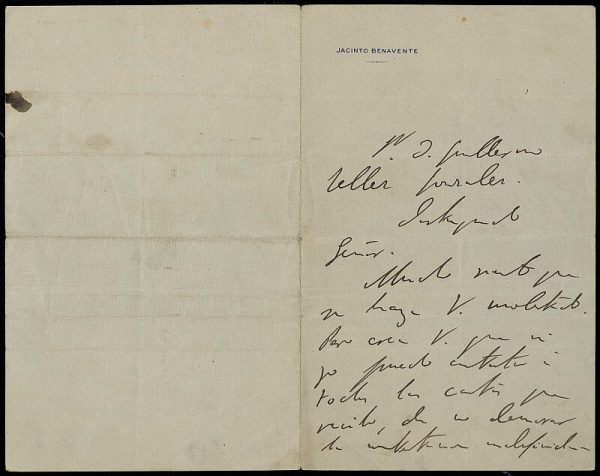 JACINTO BENAVENTE
Sr. D. Guillermo
Teller Gonzalez.
Distinguido
Señor.
Mucho siento que
se haya V. molestado.
Pero crea V. que si
yo puedo contestar á
todas las cartas que
recibo, de no demorar
la contestacion indefinida